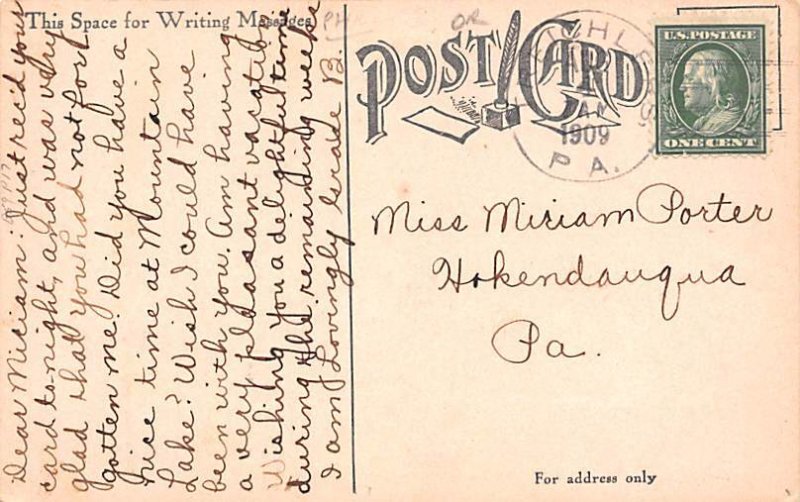 This Space for Writing Messages
POST CARD
1909
PA.
U.S. POSTAGE
ONE CENT
Dear Miriam: Just rec'd your
card to-night, and was very
glad that you had not for-
gotten me. Did you have a
nice time at Mountain
Lake? Wish I could have
been with you. Am having
a very pleasant vacation
Wishing you a delightful time
during the remaining weeks
I am Lovingly Grade B.
Miss Miriam Porter
Hokendauqua
Pa.
For address only